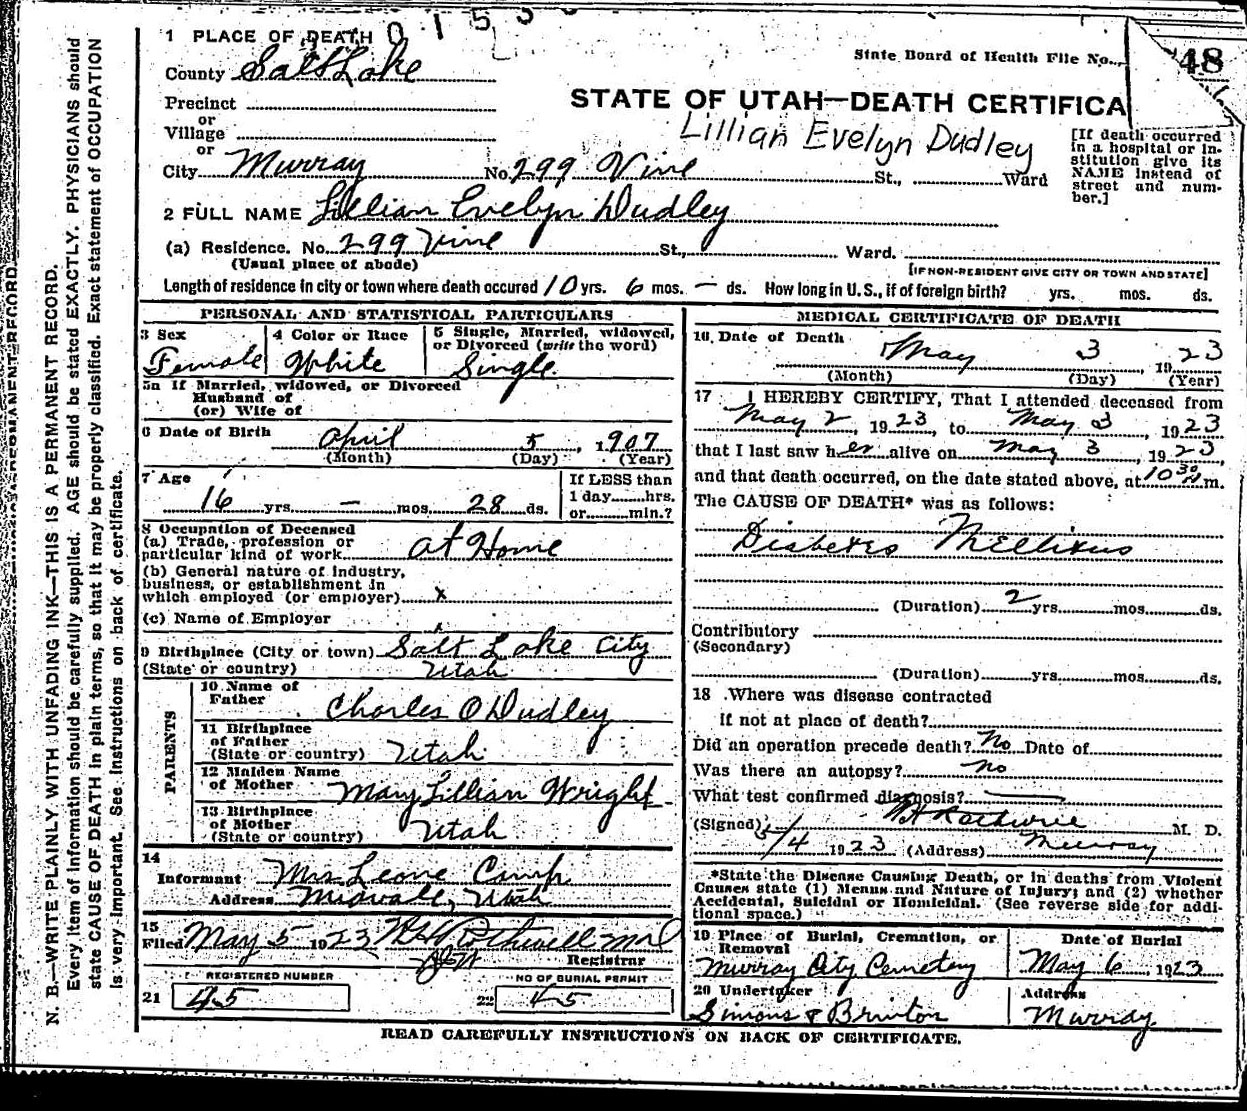 1 PLACE OF DEATH 0 1 5 3
County Salt Lake
State Board of Health File No. 48
Precinct
or
Village
or
STATE OF UTAH—DEATH CERTIFICA
Lillian Evelyn Dudley
City Murray No. 299 Vine St., Ward
[If death occurred
in a hospital or in-
stitution give its
NAME instead of
street and num-
ber.]
2 FULL NAME Lillian Evelyn Dudley
(a) Residence. No. 299 Vine St., Ward.
(Usual place of abode)
[IF NON-RESIDENT GIVE CITY OR TOWN AND STATE]
Length of residence in city or town where death occured 10 yrs. 6 mos. — ds. How long in U.S., if of foreign birth? yrs. mos. ds.
PERSONAL AND STATISTICAL PARTICULARS
3 Sex
Female
4 Color or Race
White
5 Single, Married, widowed,
or Divorced (write the word)
Single
5a If Married, widowed, or Divorced
Husband of
(or) Wife of
6 Date of Birth April 5, 1907
(Month) (Day) (Year)
7 Age
16 yrs. — mos. 28 ds.
If LESS than
1 day hrs.
or min.?
8 Occupation of Deceased
(a) Trade, profession or
particular kind of work At Home
(b) General nature of industry,
business, or establishment in
which employed (or employer) x
(c) Name of Employer
9 Birthplace (City or town) Salt Lake City
(State or country) Utah
PARENTS
10 Name of
Father Charles O Dudley
11 Birthplace
of Father
(State or country) Utah
12 Maiden Name
of Mother Mary Lillian Wright
13 Birthplace
of Mother
(State or country) Utah
14
Informant Mrs Leone Camp
Address Midvale, Utah
15
Filed May 5 1923
Registrar
REGISTERED NUMBER
21 45
NO OF BURIAL PERMIT
22 45
MEDICAL CERTIFICATE OF DEATH
16 Date of Death May 3, 1923
(Month) (Day) (Year)
17 I HEREBY CERTIFY, That I attended deceased from
May 2, 1923, to May 3, 1923
that I last saw her alive on May 3, 1923,
and that death occurred, on the date stated above, at 10 30 A m.
The CAUSE OF DEATH* was as follows:
Diabetes Mellitus
(Duration) 2 yrs. mos. ds.
Contributory
(Secondary)
(Duration) yrs. mos. ds.
18 Where was disease contracted
if not at place of death?
Did an operation precede death? No Date of
Was there an autopsy? No
What test confirmed diagnosis? —
(Signed) M. D.
5/4 1923 (Address) Murray
*State the Disease Causing Death, or in deaths from Violent
Causes state (1) Menus and Nature of Injury; and (2) whether
Accidental, Suicidal or Homicidal. (See reverse side for addi-
tional space.)
19 Place of Burial, Cremation, or
Removal
Murray City Cemetery
Date of Burial
May 6, 1923
20 Undertaker
Simons & Brinton
Address
Murray
READ CAREFULLY INSTRUCTIONS ON BACK OF CERTIFICATE.
N. B.—WRITE PLAINLY WITH UNFADING INK—THIS IS A PERMANENT RECORD.
Every item of information should be carefully supplied. AGE should be stated EXACTLY. PHYSICIANS should
state CAUSE OF DEATH in plain terms, so that it may be properly classified. Exact statement of OCCUPATION
is very important. See instructions on back of certificate.